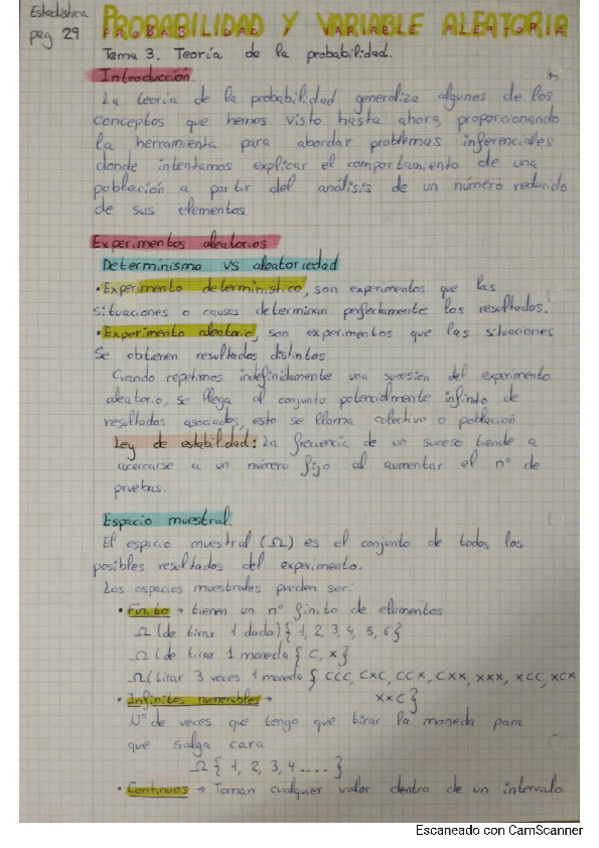 Estadística
pag 29
PROBABILIDAD Y VARIABLE ALEATORIA
Tema 3. Teoría de la probabilidad.
Introducción
La teoría de la probabilidad generaliza algunos de los
conceptos que hemos visto hasta ahora, proporcionando
la herramienta para abordar problemas inferenciales
donde intentamos explicar el comportamiento de una
población a partir del análisis de un número reducido
de sus elementos.
Experimentos aleatorios
Determinismo vs aleatoriedad
• Experimento determinístico, son experimentos que las
situaciones o causas determinan perfectamente los resultados.
• Experimento aleatorio, son experimentos que las situaciones
se obtienen resultados distintos.
Cuando repetimos indefinidamente una sucesión del experimento
aleatorio, se llega al conjunto potencialmente infinito de
resultados asociados, esto se llama colectivo o población
Ley de estabilidad: La frecuencia de un suceso tiende a
acercarse a un número fijo al aumentar el nº de
pruebas.
Espacio muestral.
El espacio muestral (Ω) es el conjunto de todos los
posibles resultados del experimento.
Los espacios muestrales pueden ser:
• Finito → tienen un nº finito de elementos
Ω (de tirar 1 dado) { 1, 2, 3, 4, 5, 6 }
Ω (de tirar 1 moneda { C, X }
Ω (tirar 3 veces 1 moneda { CCC, CXC, CCX, CXX, XXX, XCC, XCX
XXC }
• Infinitos numerables →
Nº de veces que tengo que tirar la moneda para
que salga cara
Ω { 1, 2, 3, 4 .... }
• Continuos → Toman cualquier valor dentro de un intervalo
Escaneado con CamScanner